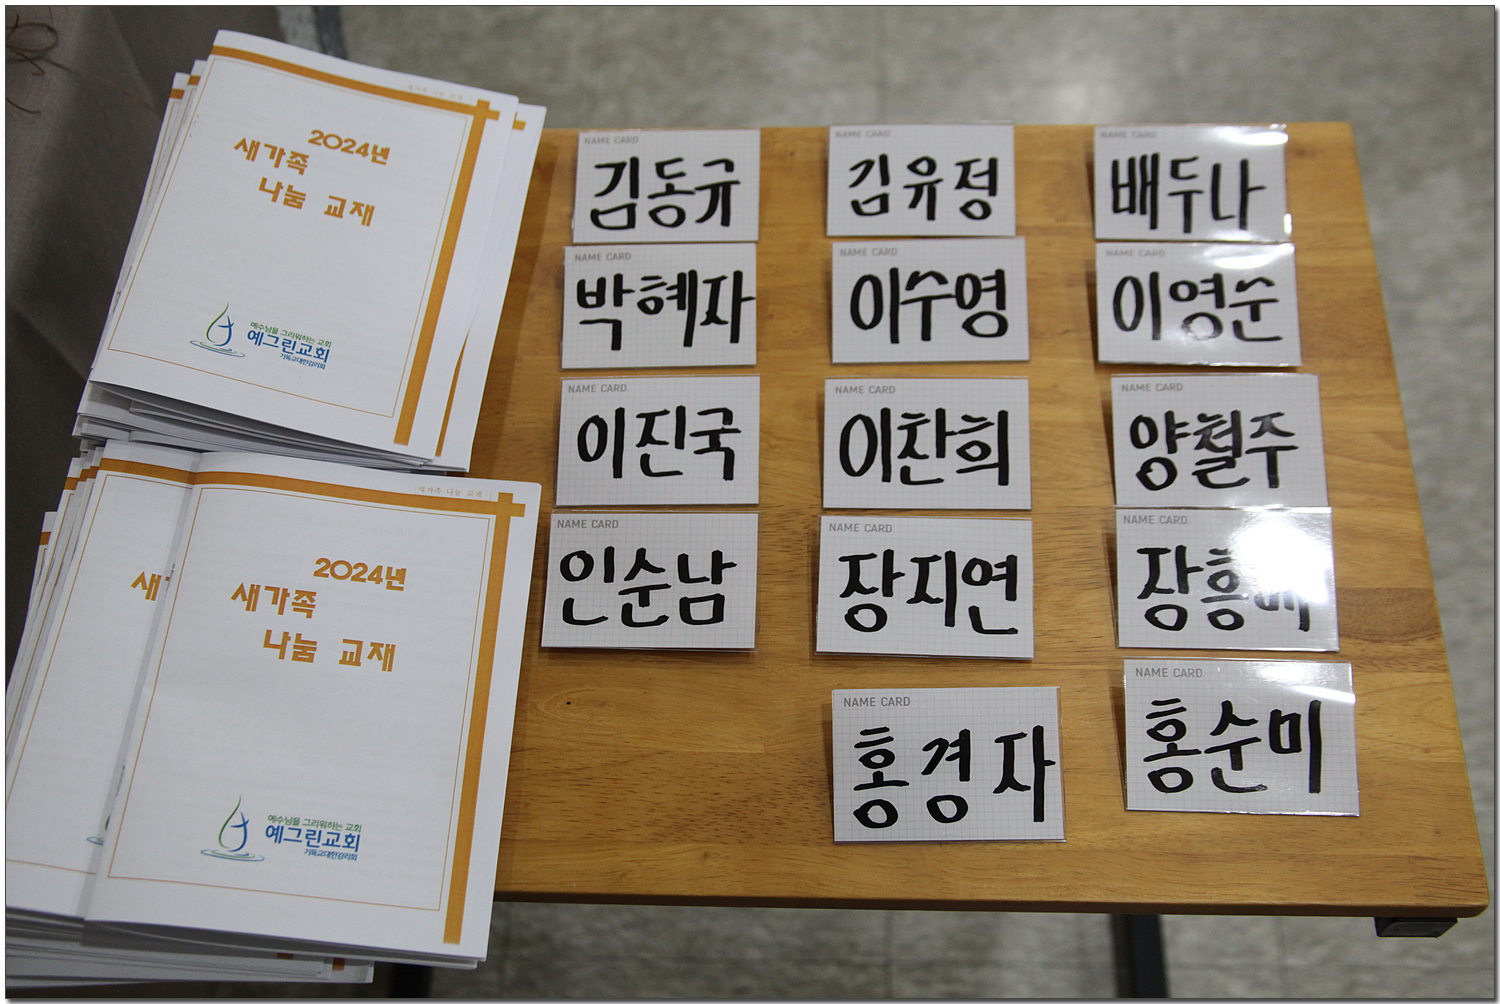 2024년
새가족
나눔 교재
예수님을 그리워하는 교회
예그린교회
기독교대한감리회
새가족 나눔 교재
2024년
새가족
나눔 교재
예수님을 그리워하는 교회
예그린교회
기독교대한감리회
NAME CARD
김동규
NAME CARD
김유정
NAME CARD
배두나
NAME CARD
박혜자
NAME CARD
이수영
NAME CARD
이영순
NAME CARD
이진국
NAME CARD
이찬희
NAME CARD
양철주
NAME CARD
인순남
NAME CARD
장지연
NAME CARD
장흥
NAME CARD
홍경자
NAME CARD
홍순미